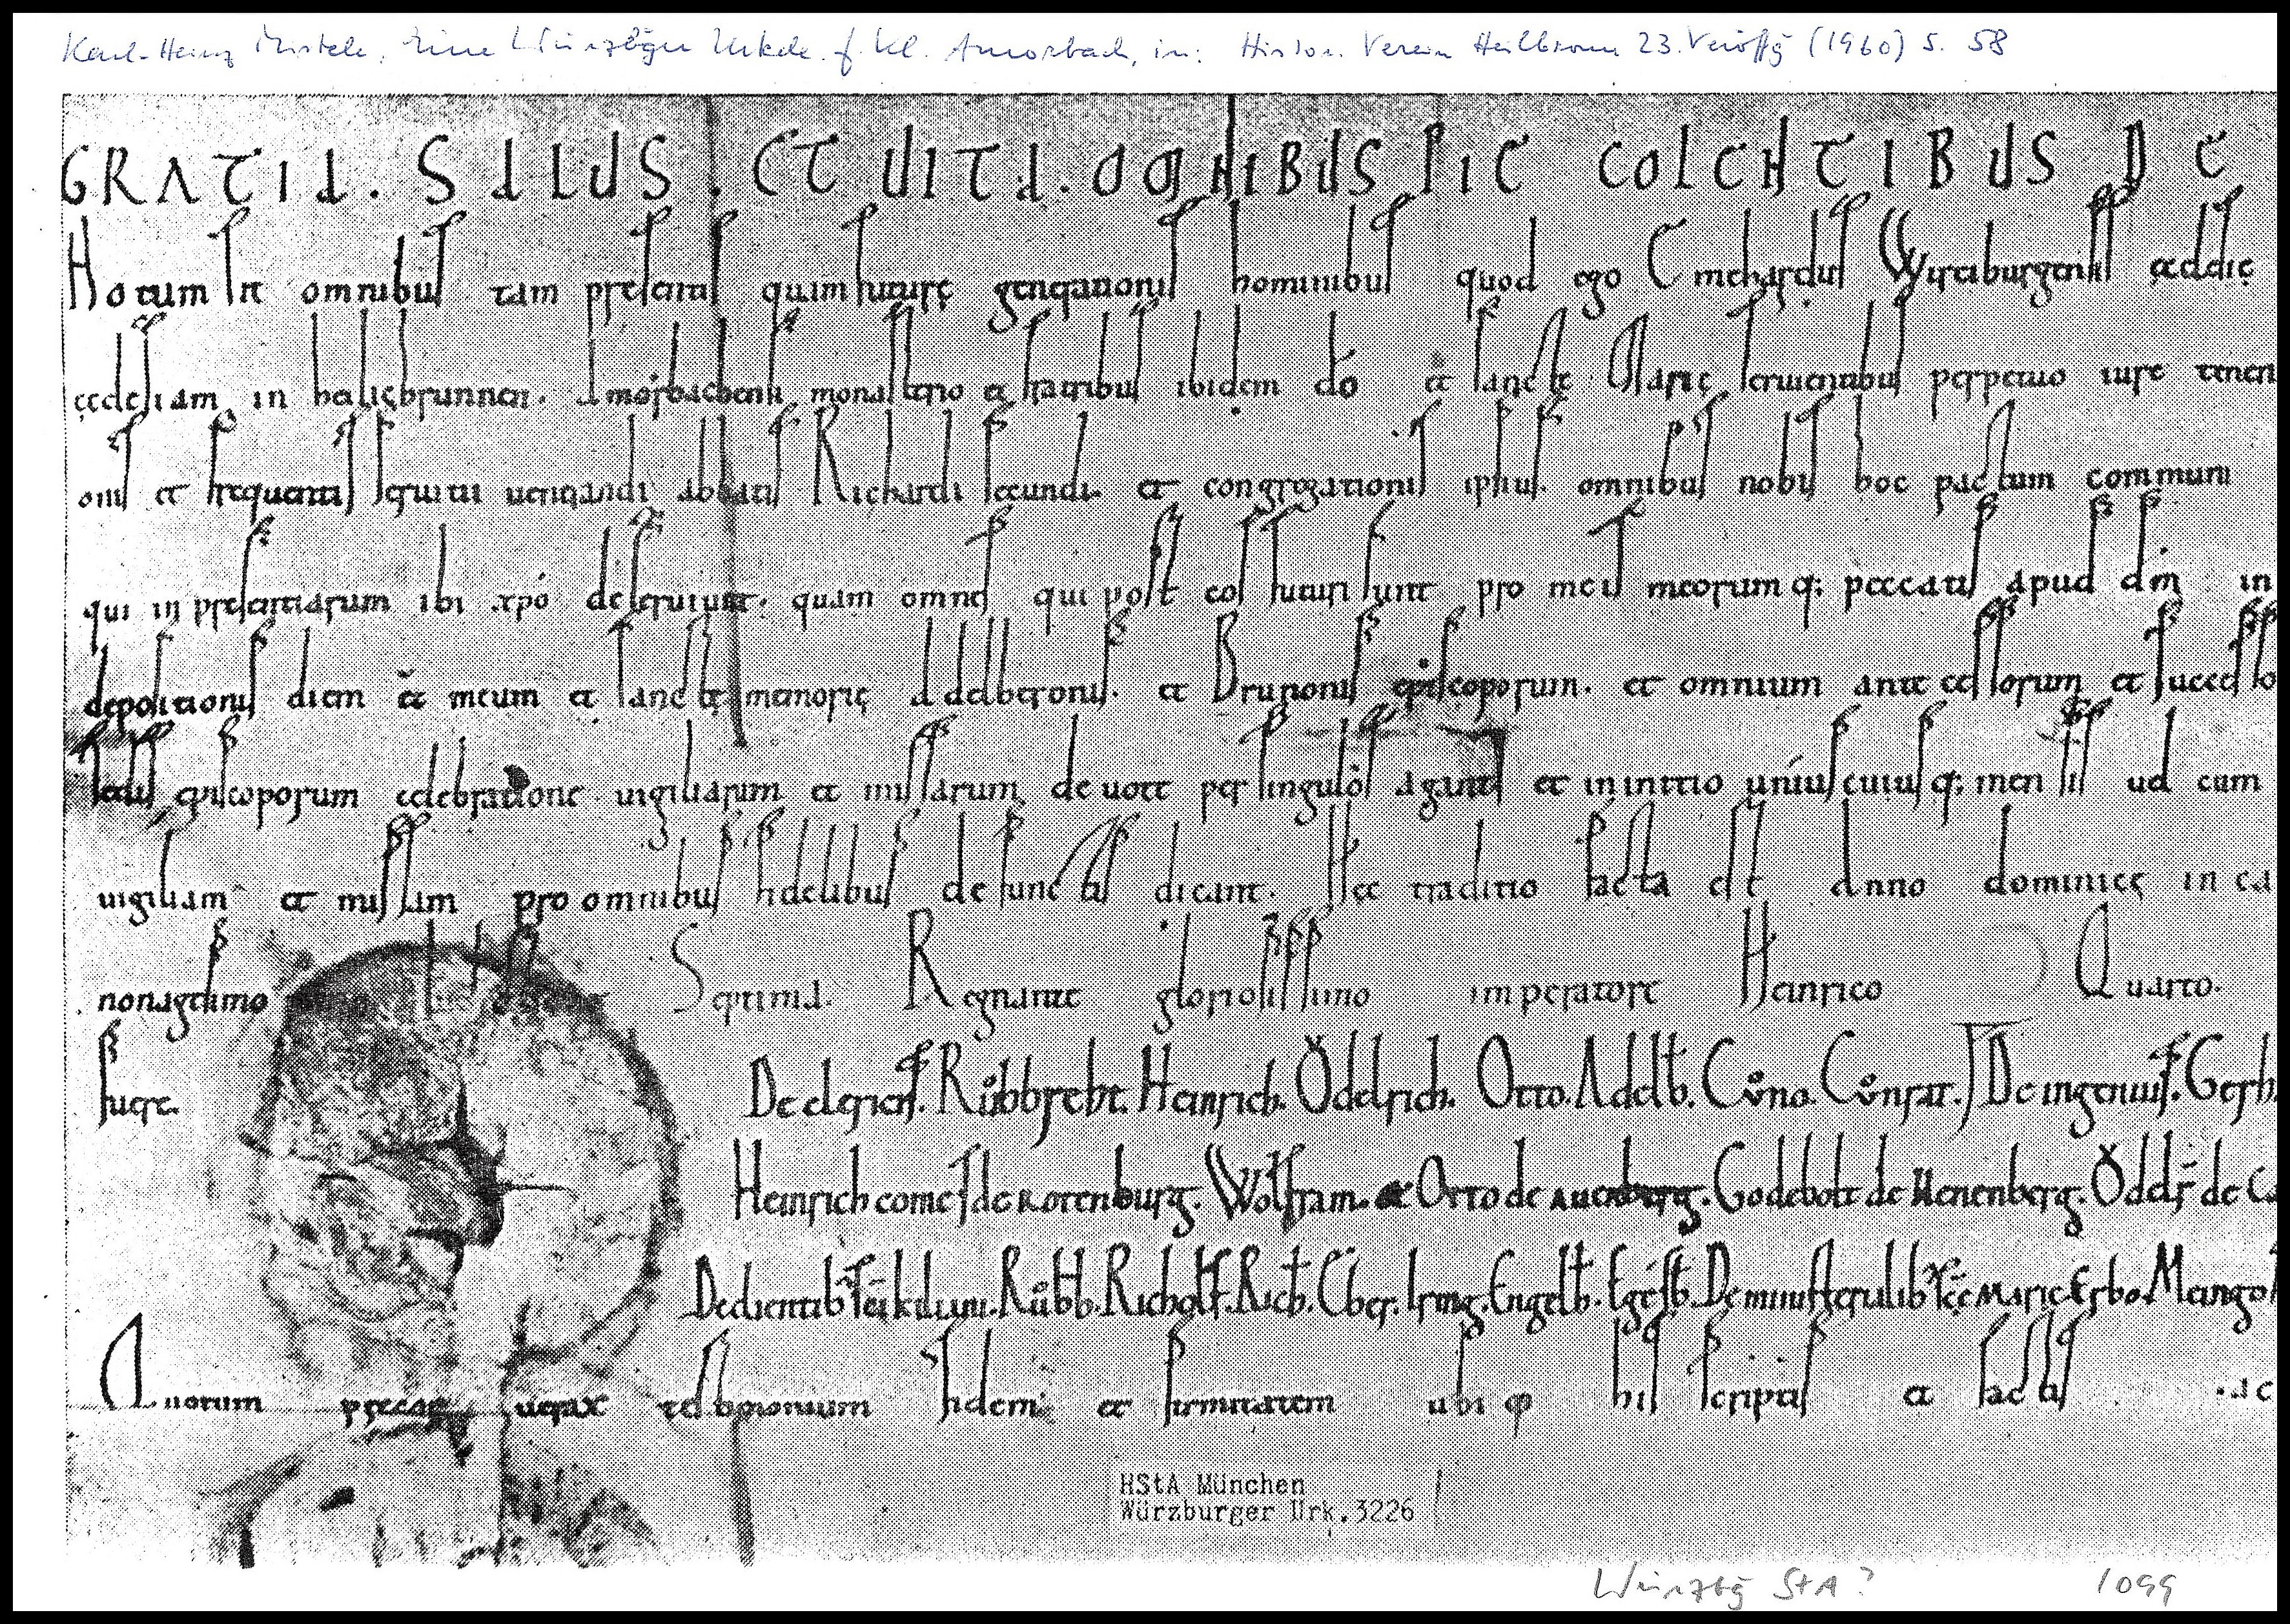 Karl-Heinz Mistele, Eine Würzbger Urkde. f. Kl. Amorbach, in: Histor. Verein Heilbronn 23. Veröffg (1960) S. 58
GRATIA. SALUS. ET UITA. OMNIBUS PIE COLENTIBUS DE
Notum sit omnibus tam presentis quam future generationis hominibus quod ego Emehardus Wirciburgensis ęcclęsię
ęcclesiam in heligbrunnen. Amorbachensi monasterio et fratribus ibidem dō et sancte Marię seruientibus perpetuo iure tenen
onis et frequentis seruitii uenerandi abbatis Richardi secundi et congregationis ipsius. omnibus nobis hoc pactum communi
qui in presentiarum ibi xpō deseruiunt. quam omnes qui post eos futuri sunt pro meis meorumq; peccatis apud dm̄ in
depositionis diem et meum et sanctę memorię Adelberonis. et Brunonis episcoporum. et omnium antecessorum et successo
sedis episcoporum celebratione uigiliarum et missarum deuote per singulos agant et in initio uniuscuiusq; mensis uel cum
uigiliam et missam pro omnibus fidelibus defunctis dicant. Hęc traditio facta est Anno dominicę inca
nonagesimo Septima. Regnante gloriosissimo imperatore Heinrico Quarto.
fuere. De clericis. Růbbreht. Heinrich. Ŏdelrich. Otto. Adelb. Cůno. Cůnrat. De ingenuis. Gerh
Heinrich comes de rotenburg. Wolfram. et Otto de auenberg. Godebolt de Henenberg. Ŏdelr de Ca
De clientib sēi kiliani. Růbb. Richolf. Rich. Eber. Iring. Engelb. Egesb. De ministerialib sēe Marię Erbo. Meingo
Quorum precor uerax testimonium fidem et firmitatem ubiq his scriptis et factis
HStA München
Würzburger Urk.3226
Würzbg StA? 1099